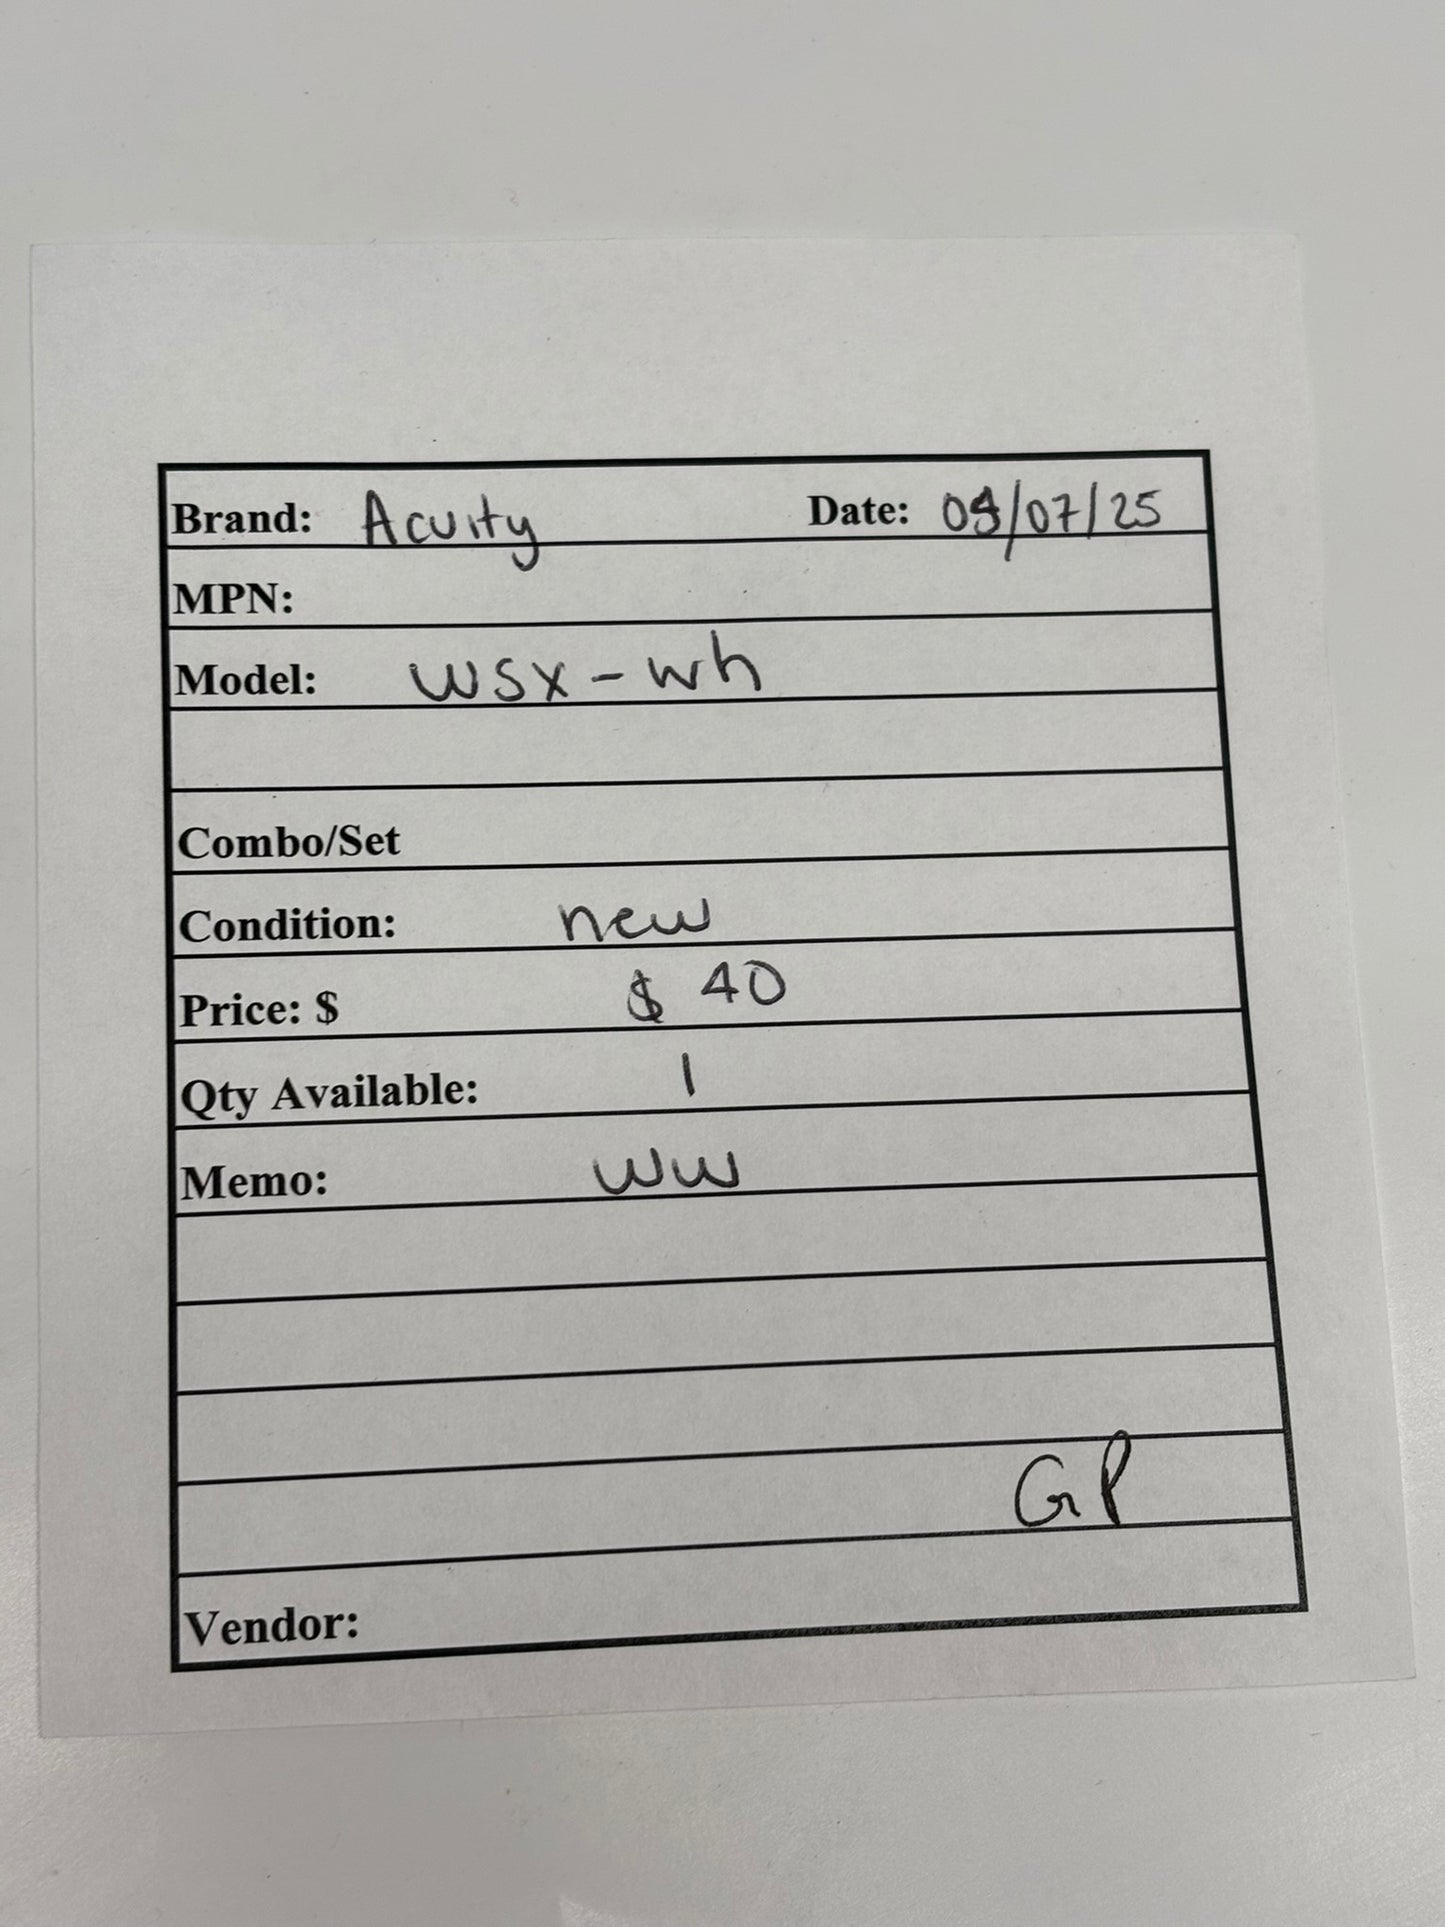 Brand: Acuity Date: 09/07/25
MPN:
Model: WSX-Wh
Combo/Set
Condition: new
Price: $ $ 40
Qty Available: 1
Memo: WW
GP
Vendor: